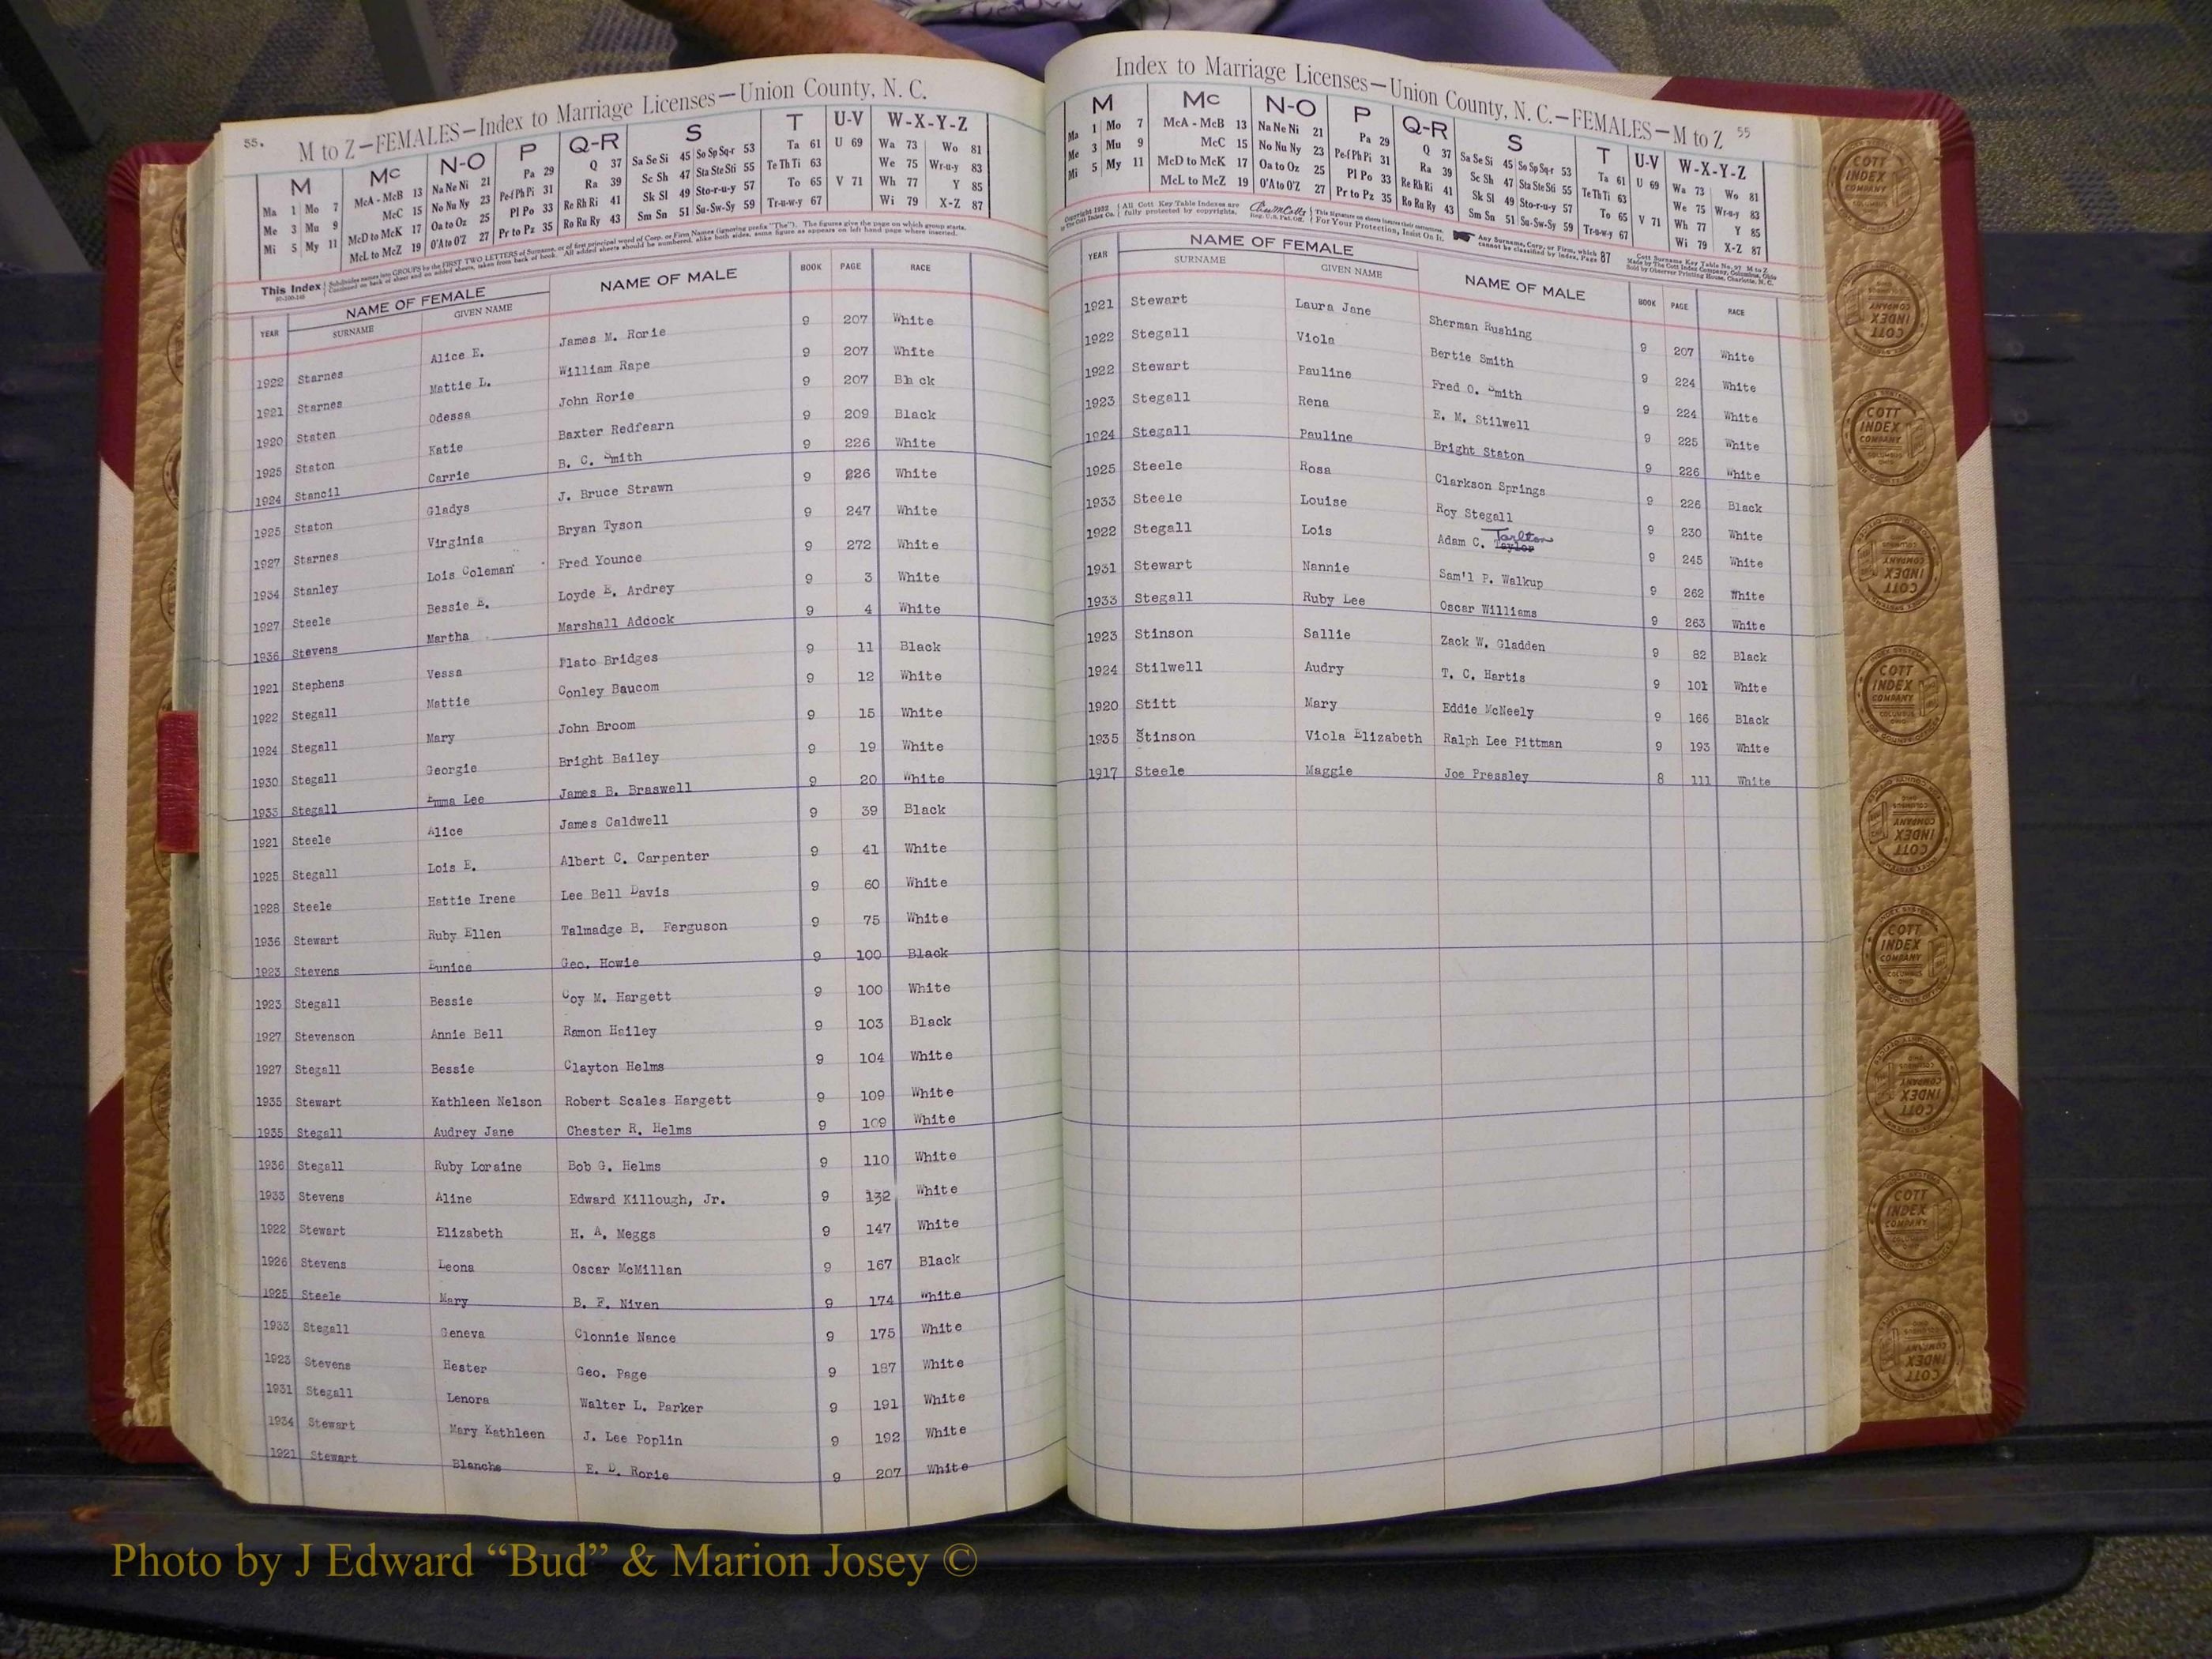 55.
M to Z—FEMALES—Index to Marriage Licenses—Union County, N. C.
M Mc N-O P Q-R S T U-V W-X-Y-Z
Ma 1 Mo 7 McA - McB 13 Na Ne Ni 21 Pa 29 Q 37 Sa Se Si 45 So Sp Sq-r 53 Ta 61 U 69 Wa 73 Wo 81
Me 3 Mu 9 McC 15 No Nu Ny 23 Pe-f Ph Pi 31 Ra 39 Sc Sh 47 Sta Ste Sti 55 Te Th Ti 63 We 75 Wr-u-y 83
Mi 5 My 11 McD to McK 17 Oa to Oz 25 Pl Po 33 Re Rh Ri 41 Sk Sl 49 Sto-r-u-y 57 To 65 V 71 Wh 77 Y 85
McL to McZ 19 O'A to O'Z 27 Pr to Pz 35 Ro Ru Ry 43 Sm Sn 51 Su-Sw-Sy 59 Tr-u-w-y 67 Wi 79 X-Z 87
This Index Subdivides names into GROUPS by the FIRST TWO LETTERS of Surname, or of first principal word of Corp. or Firm Names (ignoring prefix "The"). The figures give the page on which group starts.
Continued on back of sheet and on added sheets, taken from back of book. All added sheets should be numbered, alike both sides, same figure as appears on left hand page where inserted.
YEAR NAME OF FEMALE SURNAME GIVEN NAME NAME OF MALE BOOK PAGE RACE
1922 Starnes Alice E. James M. Rorie 9 207 White
1921 Starnes Mattie L. William Rape 9 207 White
1920 Staten Odessa John Rorie 9 207 Black
1925 Staton Katie Baxter Redfearn 9 209 Black
1924 Stancil Carrie B. C. Smith 9 226 White
1925 Staton Gladys J. Bruce Strawn 9 226 White
1927 Starnes Virginia Bryan Tyson 9 247 White
1934 Stanley Lois Coleman Fred Younce 9 272 White
1927 Steele Bessie E. Loyde E. Ardrey 9 3 White
1936 Stevens Martha Marshall Adcock 9 4 White
1921 Stephens Vessa Plato Bridges 9 11 Black
1922 Stegall Mattie Conley Baucom 9 12 White
1924 Stegall Mary John Broom 9 15 White
1930 Stegall Georgie Bright Bailey 9 19 White
1933 Stegall Emma Lee James B. Braswell 9 20 White
1921 Steele Alice James Caldwell 9 39 Black
1925 Stegall Lois E. Albert C. Carpenter 9 41 White
1928 Steele Hattie Irene Lee Bell Davis 9 60 White
1936 Stewart Ruby Ellen Talmadge B. Ferguson 9 75 White
1923 Stevens Eunice Geo. Howie 9 100 Black
1923 Stegall Bessie Coy M. Hargett 9 100 White
1927 Stevenson Annie Bell Ramon Hailey 9 103 Black
1927 Stegall Bessie Clayton Helms 9 104 White
1935 Stewart Kathleen Nelson Robert Scales Hargett 9 109 White
1935 Stegall Audrey Jane Chester R. Helms 9 109 White
1936 Stegall Ruby Loraine Bob G. Helms 9 110 White
1933 Stevens Aline Edward Killough, Jr. 9 132 White
1922 Stewart Elizabeth H. A. Meggs 9 147 White
1926 Stevens Leona Oscar McMillan 9 167 Black
1925 Steele Mary B. F. Niven 9 174 White
1933 Stegall Geneva Clonnie Nance 9 175 White
1923 Stevens Hester Geo. Page 9 187 White
1931 Stegall Lenora Walter L. Parker 9 191 White
1934 Stewart Mary Kathleen J. Lee Poplin 9 192 White
1921 Stewart Blanche E. D. Rorie 9 207 White
Index to Marriage Licenses—Union County, N. C.—FEMALES—M to Z 55
M Mc N-O P Q-R S T U-V W-X-Y-Z
Ma 1 Mo 7 McA - McB 13 Na Ne Ni 21 Pa 29 Q 37 Sa Se Si 45 So Sp Sq-r 53 Ta 61 U 69 Wa 73 Wo 81
Me 3 Mu 9 McC 15 No Nu Ny 23 Pe-f Ph Pi 31 Ra 39 Sc Sh 47 Sta Ste Sti 55 Te Th Ti 63 We 75 Wr-u-y 83
Mi 5 My 11 McD to McK 17 Oa to Oz 25 Pl Po 33 Re Rh Ri 41 Sk Sl 49 Sto-r-u-y 57 To 65 V 71 Wh 77 Y 85
McL to McZ 19 O'A to O'Z 27 Pr to Pz 35 Ro Ru Ry 43 Sm Sn 51 Su-Sw-Sy 59 Tr-u-w-y 67 Wi 79 X-Z 87
Copyright 1932 by The Cott Index Co. All Cott Key Table Indexes are fully protected by copyrights. Reg. U.S. Pat. Off. For Your Protection, Insist On It. Any Surname, Corp. or Firm, which cannot be classified by Index, Page 87 Cott Surname Key Table No. 97 M to Z Made by The Cott Index Company, Columbus, Ohio Sold by Observer Printing House, Charlotte, N. C.
YEAR NAME OF FEMALE SURNAME GIVEN NAME NAME OF MALE BOOK PAGE RACE
1921 Stewart Laura Jane Sherman Rushing 9 207 White
1922 Stegall Viola Bertie Smith 9 224 White
1922 Stewart Pauline Fred O. Smith 9 224 White
1923 Stegall Rena E. M. Stilwell 9 225 White
1924 Stegall Pauline Bright Staton 9 226 White
1925 Steele Rosa Clarkson Springs 9 226 Black
1933 Steele Louise Roy Stegall 9 230 White
1922 Stegall Lois Adam C. Taylor Tarlton 9 245 White
1931 Stewart Nannie Sam'l P. Walkup 9 262 White
1933 Stegall Ruby Lee Oscar Williams 9 263 White
1923 Stinson Sallie Zack W. Gladden 9 82 Black
1924 Stilwell Audry T. C. Hartis 9 101 White
1920 Stitt Mary Eddie McNeely 9 166 Black
1935 Stinson Viola Elizabeth Ralph Lee Pittman 9 193 White
1917 Steele Maggie Joe Pressley 8 111 White
COTT INDEX COMPANY COLUMBUS OHIO
Photo by J Edward “Bud” & Marion Josey ©